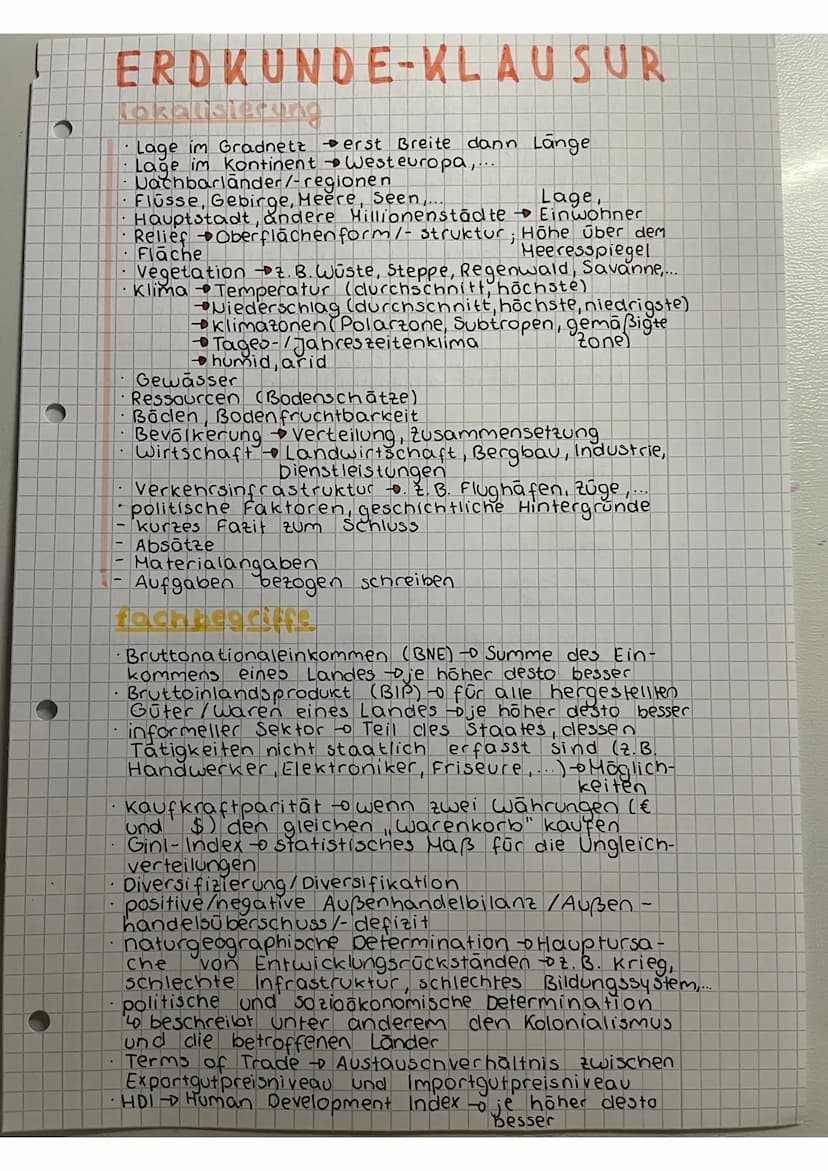 ERDKUNDE-KLAUSUR
lokalisierung
· Lage im Gradnetz → erst Breite dann Länge
· Lage im Kontinent → Westeuropa,...
· Nachbarländer/-regionen
· Flüsse, Gebirge, Meere, Seen,...
· Hauptstadt, andere Millionenstädte → Lage, Einwohner
· Relief → Oberflächenform/- struktur; Höhe über dem Meeresspiegel
· Fläche
· Vegetation → z.B. Wüste, Steppe, Regenwald, Savanne,...
· Klima → Temperatur (durchschnitt, höchste)
→ Niederschlag (durchschnitt, höchste, niedrigste)
→ Klimazonen (Polarzone, Subtropen, gemäßigte zone)
→ Tages-/Jahreszeitenklima
→ humid, arid
· Gewässer
· Ressourcen (Bodenschätze)
· Böden, Bodenfruchtbarkeit
· Bevölkerung → Verteilung, Zusammensetzung
· Wirtschaft → Landwirtschaft, Bergbau, Industrie,
Dienstleistungen
· Verkehrsinfrastruktur → z.B. Flughäfen, Züge,...
· politische Faktoren, geschichtliche Hintergründe
- kurzes Fazit zum Schluss
- Absätze
- Materialangaben
- Aufgaben bezogen schreiben
fachbegriffe
· Bruttonationaleinkommen (BNE) → Summe des Ein-
kommens eines Landes → je höher desto besser
· Bruttoinlandsprodukt (BIP) → für alle hergestellten
Güter/Waren eines Landes → je höher desto besser
· informeller Sektor → Teil des Staates, dessen
Tätigkeiten nicht staatlich erfasst sind (z.B.
Handwerker, Elektroniker, Friseure,...) → Möglich-
keiten
· Kaufkraftparität → wenn zwei Währungen (€
und $) den gleichen „Warenkorb" kaufen
· Gini-Index → statistisches Maß für die Ungleich-
verteilungen
· Diversifizierung/Diversifikation
· positive/negative Außenhandelbilanz /Außen-
handelsüberschuss/- defizit
· naturgeographische Determination → Hauptursa-
che von Entwicklungsrückständen → z.B. Krieg,
schlechte Infrastruktur, schlechtes Bildungssystem,...
· politische und sozioökonomische Determination
↳ beschreibt unter anderem den Kolonialismus
und die betroffenen Länder
· Terms of Trade → Austauschverhältnis zwischen
Exportgutpreisniveau und Importgutpreisniveau
· HDI → Human Development Index → je höher desto
besser